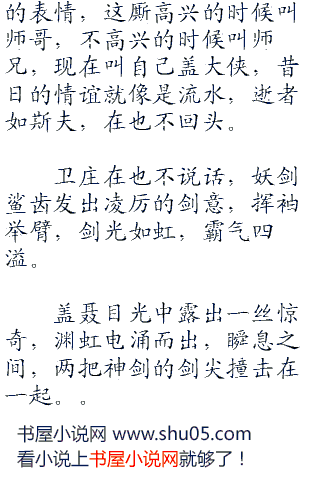 的表情，这厮高兴的时候叫
师哥，不高兴的时候叫师
兄，现在叫自己盖大侠，昔
日的情谊就像是流水，逝者
如斯夫，在也不回头。
卫庄在也不说话，妖剑
鲨齿发出凌厉的剑意，挥袖
举臂，剑光如虹，霸气四
溢。
盖聂目光中露出一丝惊
奇，渊虹电涌而出，瞬息之
间，两把神剑的剑尖撞击在
一起。。
书屋小说网 www.shu05.com
看小说上书屋小说网就够了！